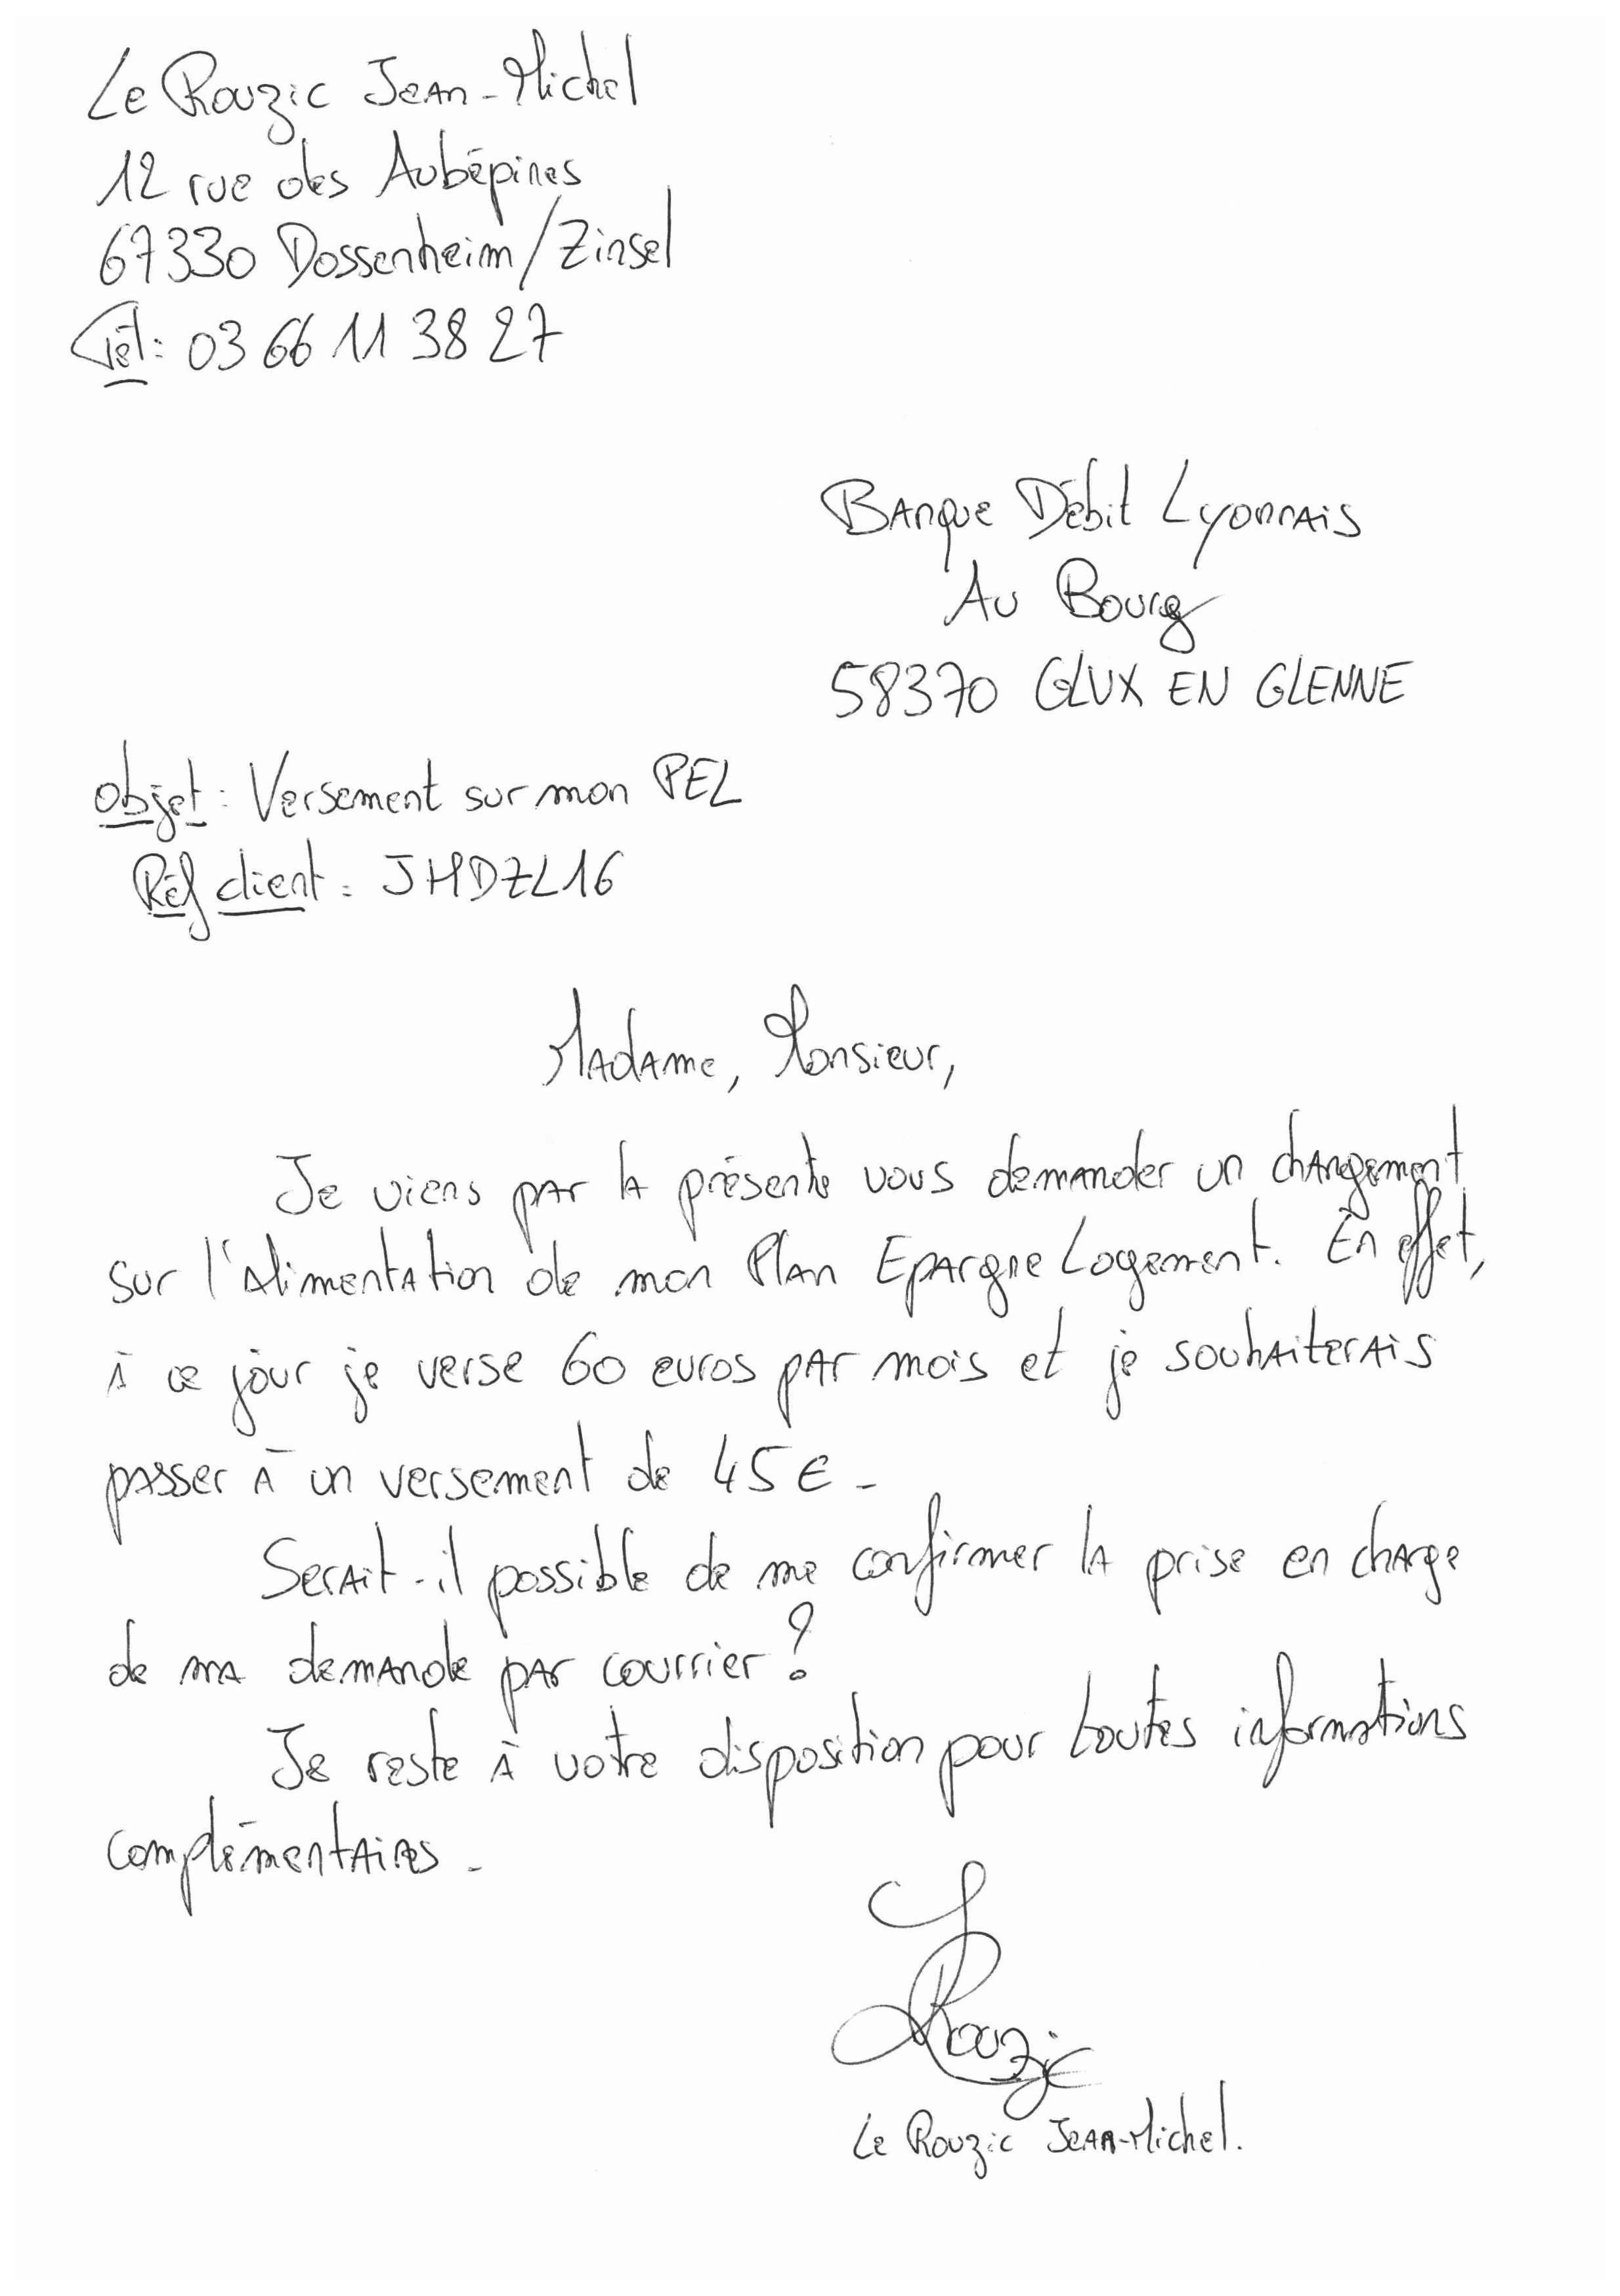 Le Rouzic Jean-Michel
12 rue des Aubépines
67330 Dossenheim/Zinsel
Tél: 03 66 11 38 27
Banque Débit Lyonnais
Au Bourg
58370 GLUX EN GLENNE
objet: Versement sur mon PEL
Réf client: JMDZL16
Madame, Monsieur,
Je viens par la présente vous demander un changement
sur l'alimentation de mon Plan Epargne Logement. En effet,
à ce jour je verse 60 euros par mois et je souhaiterais
passer à un versement de 45€.
Serait-il possible de me confirmer la prise en charge
de ma demande par courrier?
Je reste à votre disposition pour toutes informations
complémentaires.
Le Rouzic
Le Rouzic Jean-Michel.